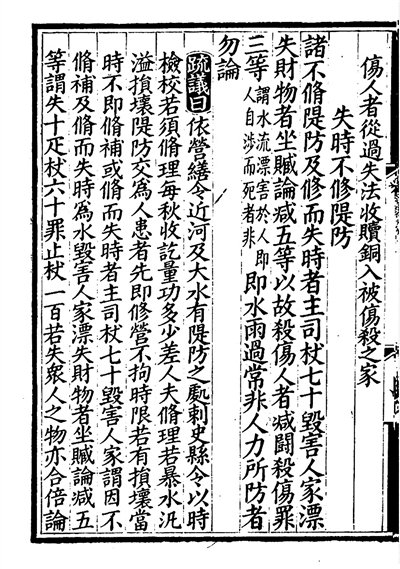 傷人者從過失法收贖銅入被傷殺之家
失時不修隄防
諸不脩隄防及修而失時者主司杖七十毀害人家漂
失財物者坐贓論减五等以故殺傷人者减鬪殺傷罪
三等謂水流漂害於人即人自涉而死者非即水雨過常非人力所防者
勿論
疏議曰依營繕令近河及大水有隄防之處刺史縣令以時
檢校若須脩理每秋收訖量功多少差人夫脩理若暴水汎
溢損壞隄防交為人患者先即修營不拘時限若有損壞當
時不即脩補或脩而失時者主司杖七十毀害人家謂因不
脩補及脩而失時為水毀害人家漂失財物者坐贓論减五
等謂失十疋杖六十罪止杖一百若失衆人之物亦合倍論